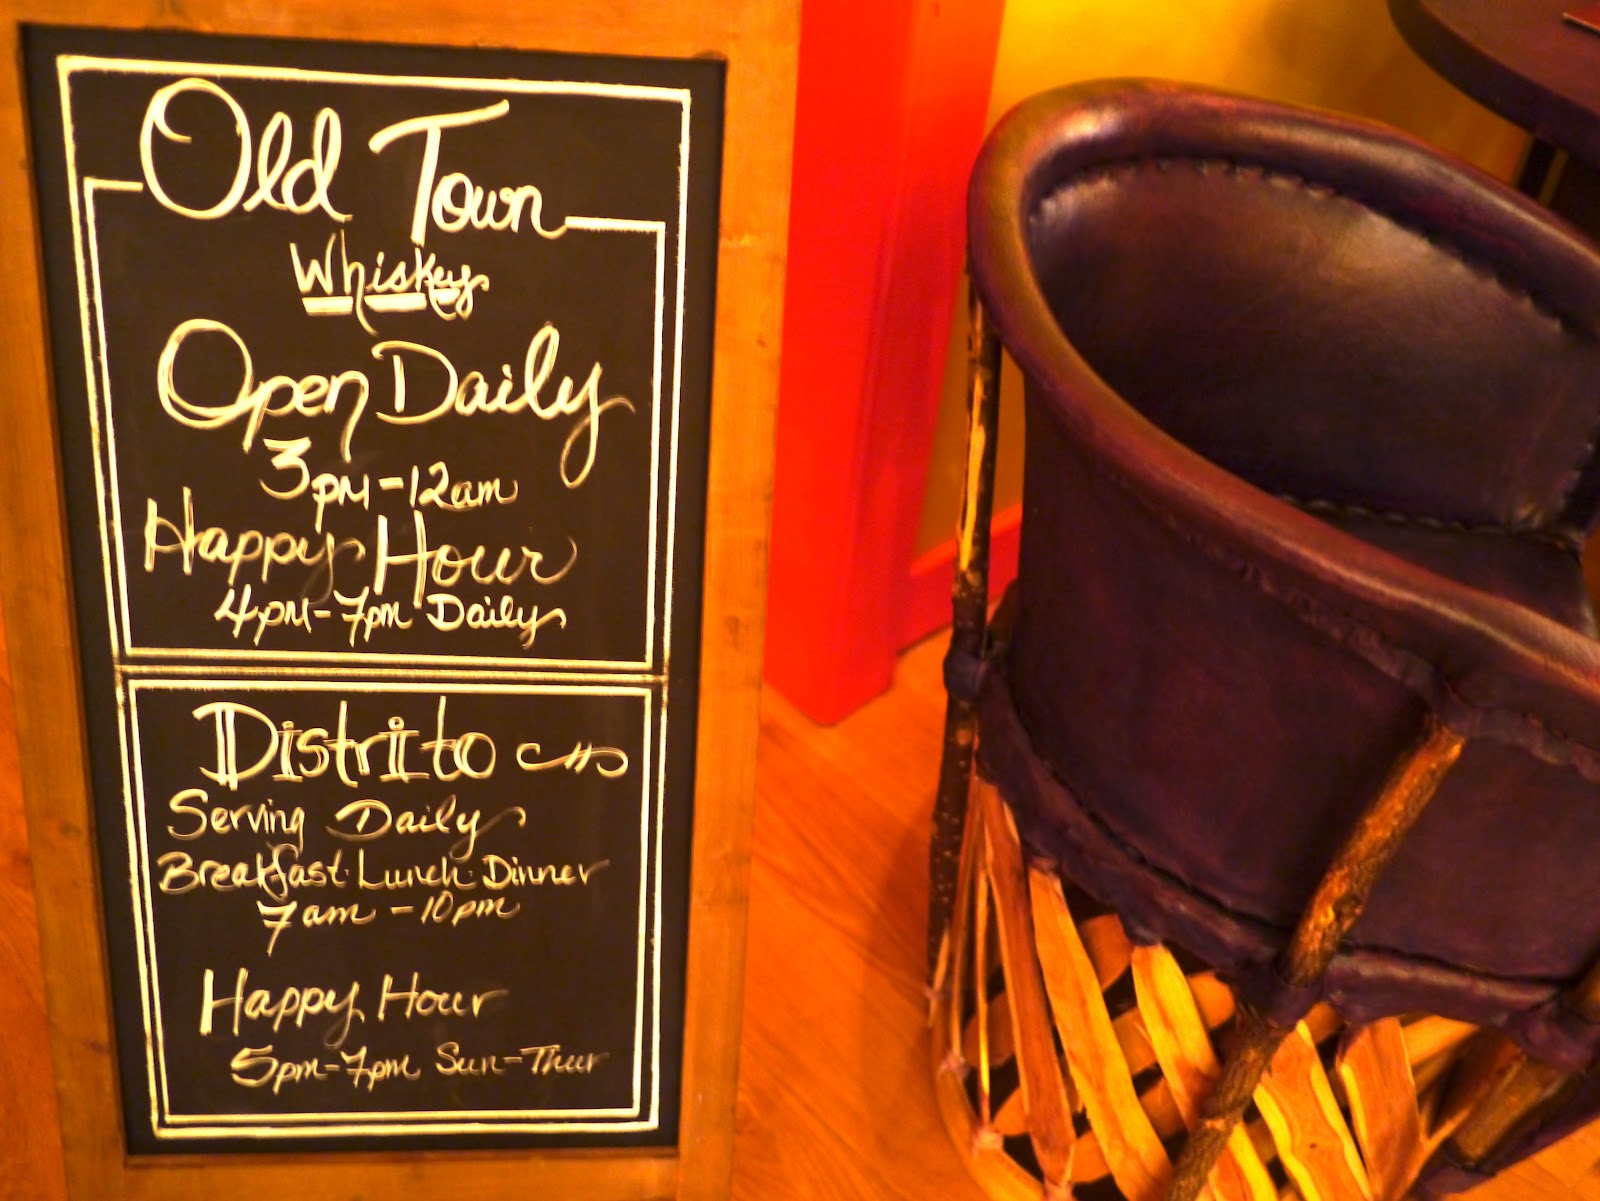 Old Town
Whiskey
Open Daily
3pm-12am
Happy Hour
4pm-7pm Daily
Distrito
Serving Daily
Breakfast·Lunch·Dinner
7am-10pm
Happy Hour
5pm-7pm Sun-Thur